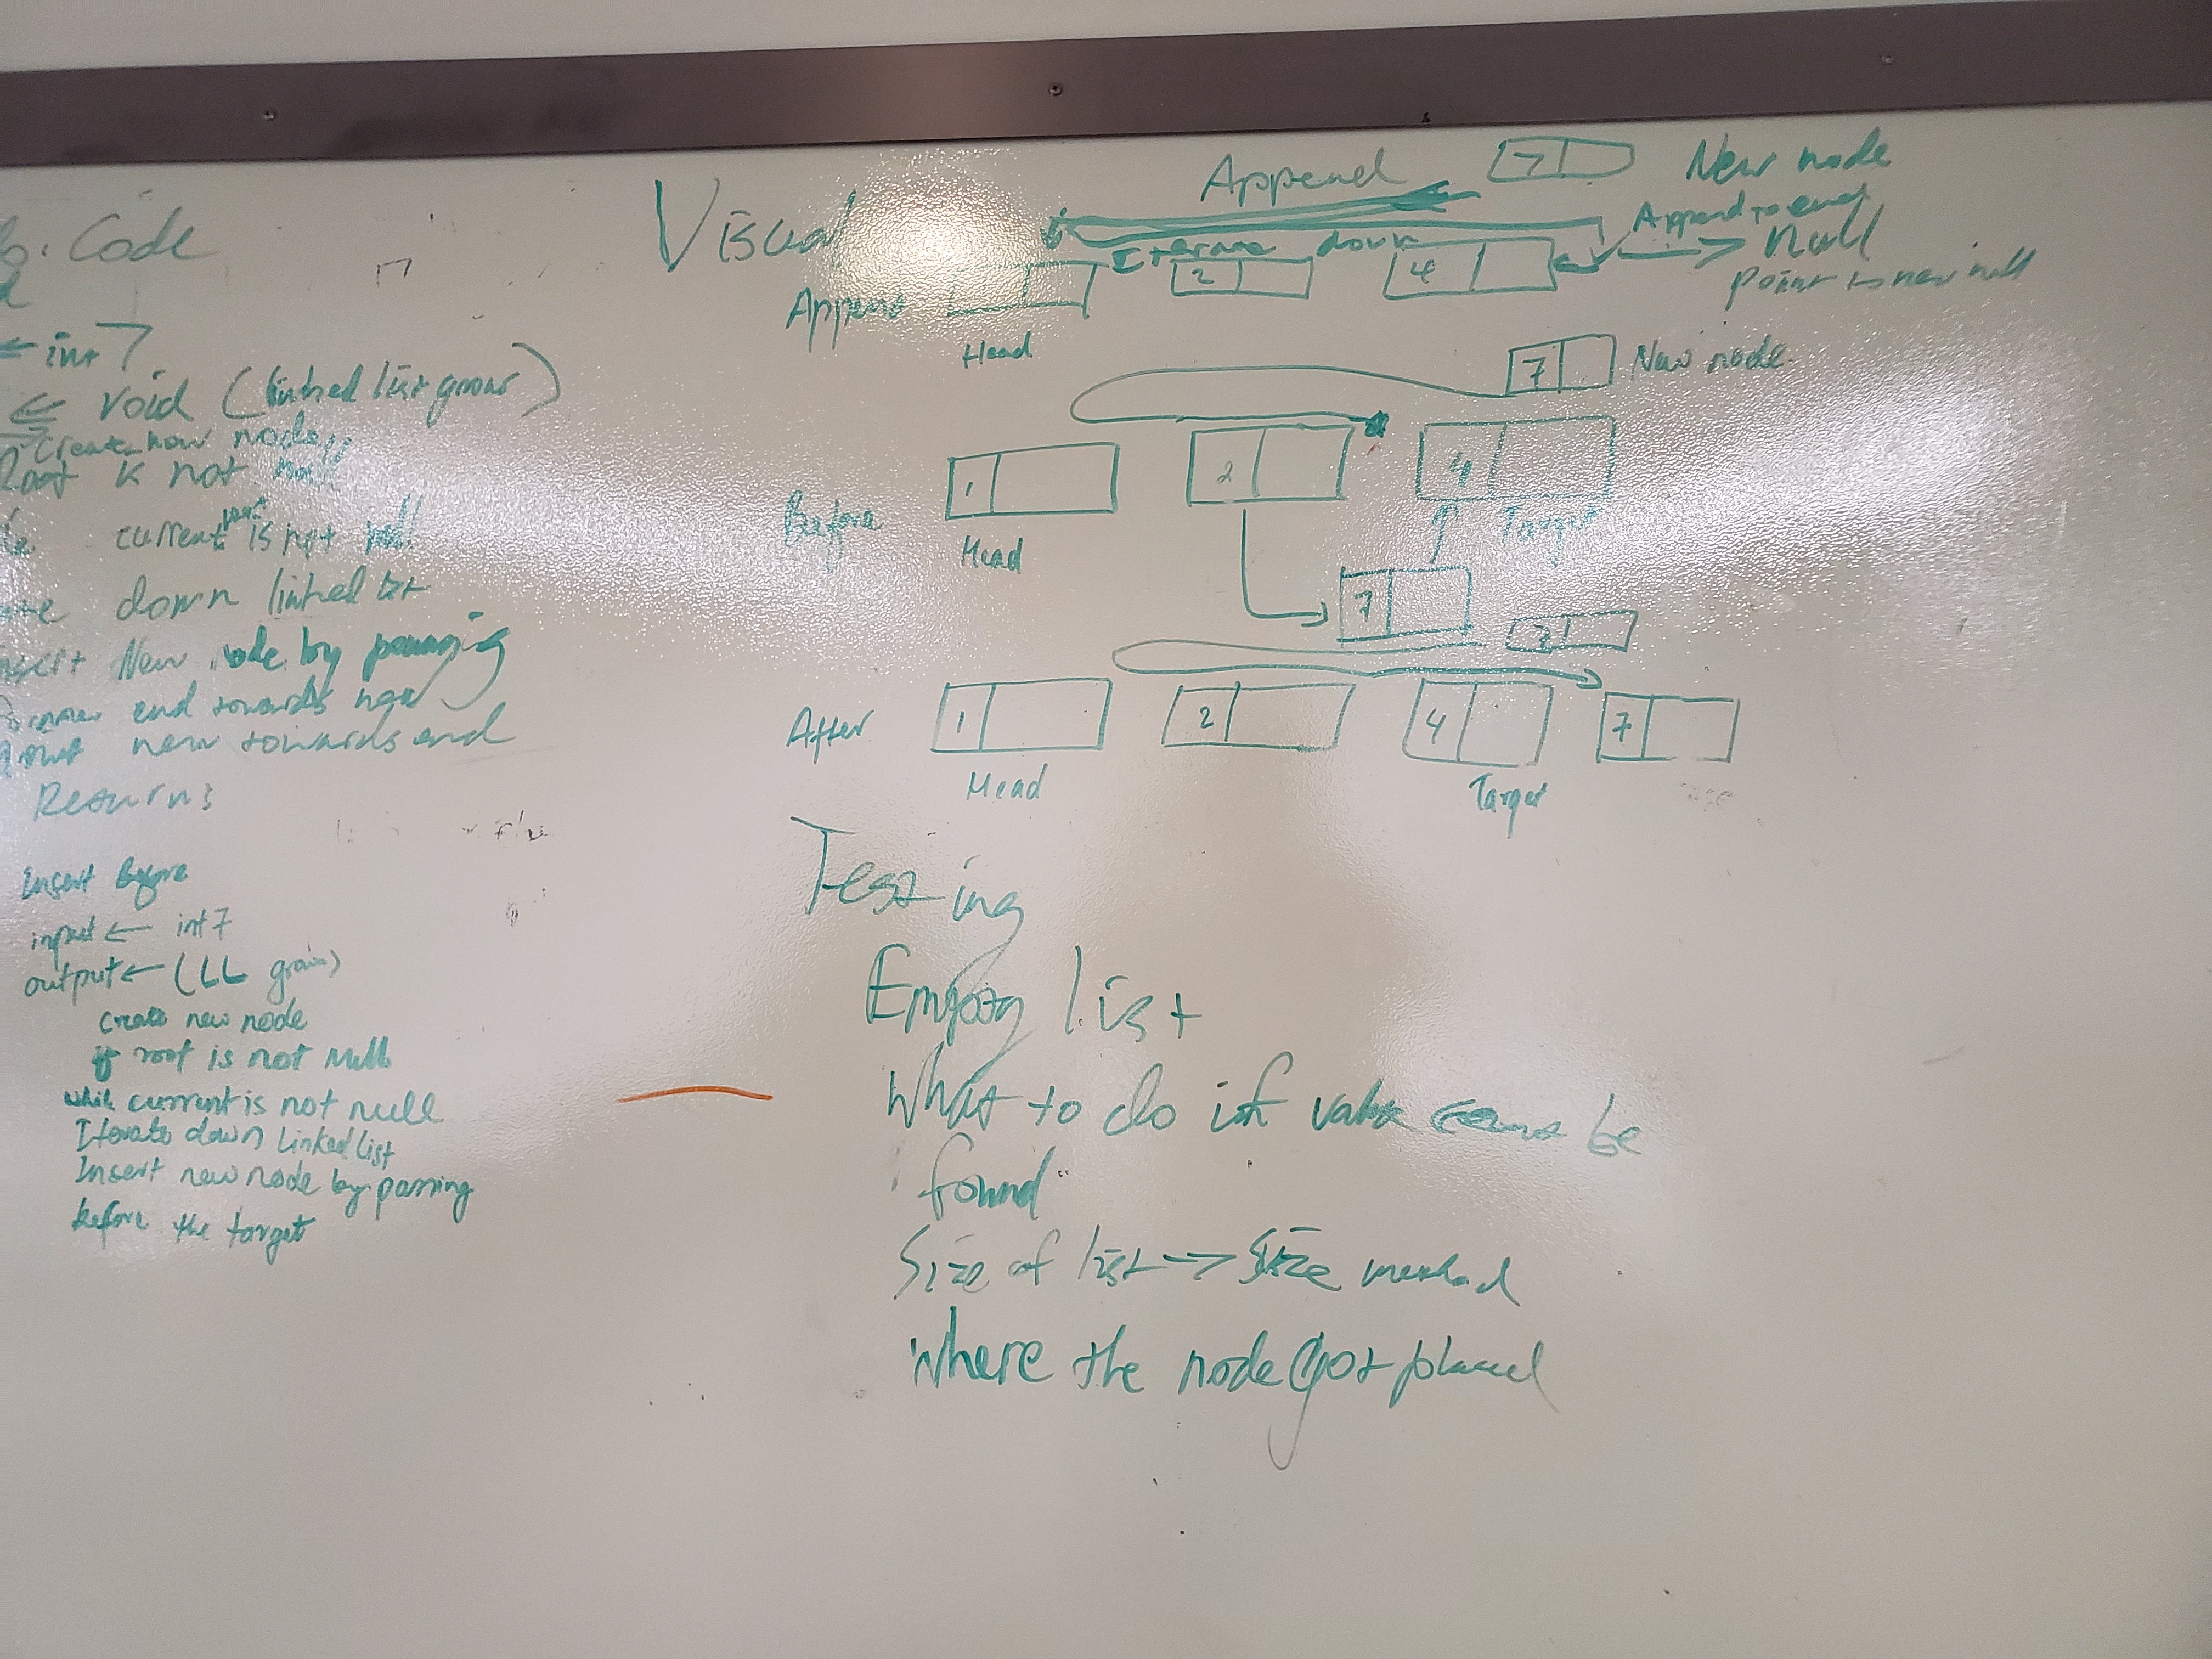 Code
← int 7
← void (linked list grows)
Create new node
Root is not null
current next is not null
down linked list
Insert New node by passing
end towards new
new towards end
Returns
Insert Before
input ← int 7
output ← (LL grows)
create new node
if root is not null
while current is not null
Iterate down linked list
Insert new node by passing
before the target
Visual
Append
7
New node
Append to end
Iterate down
Null
point to new null
Append
2
4
Head
7
New node
Before
1
2
4
Head
Target
7
7
After
1
2
4
7
Head
Target
Testing
Empty list
What to do if value be
found
Size of list → Size method
Where the node Got placed